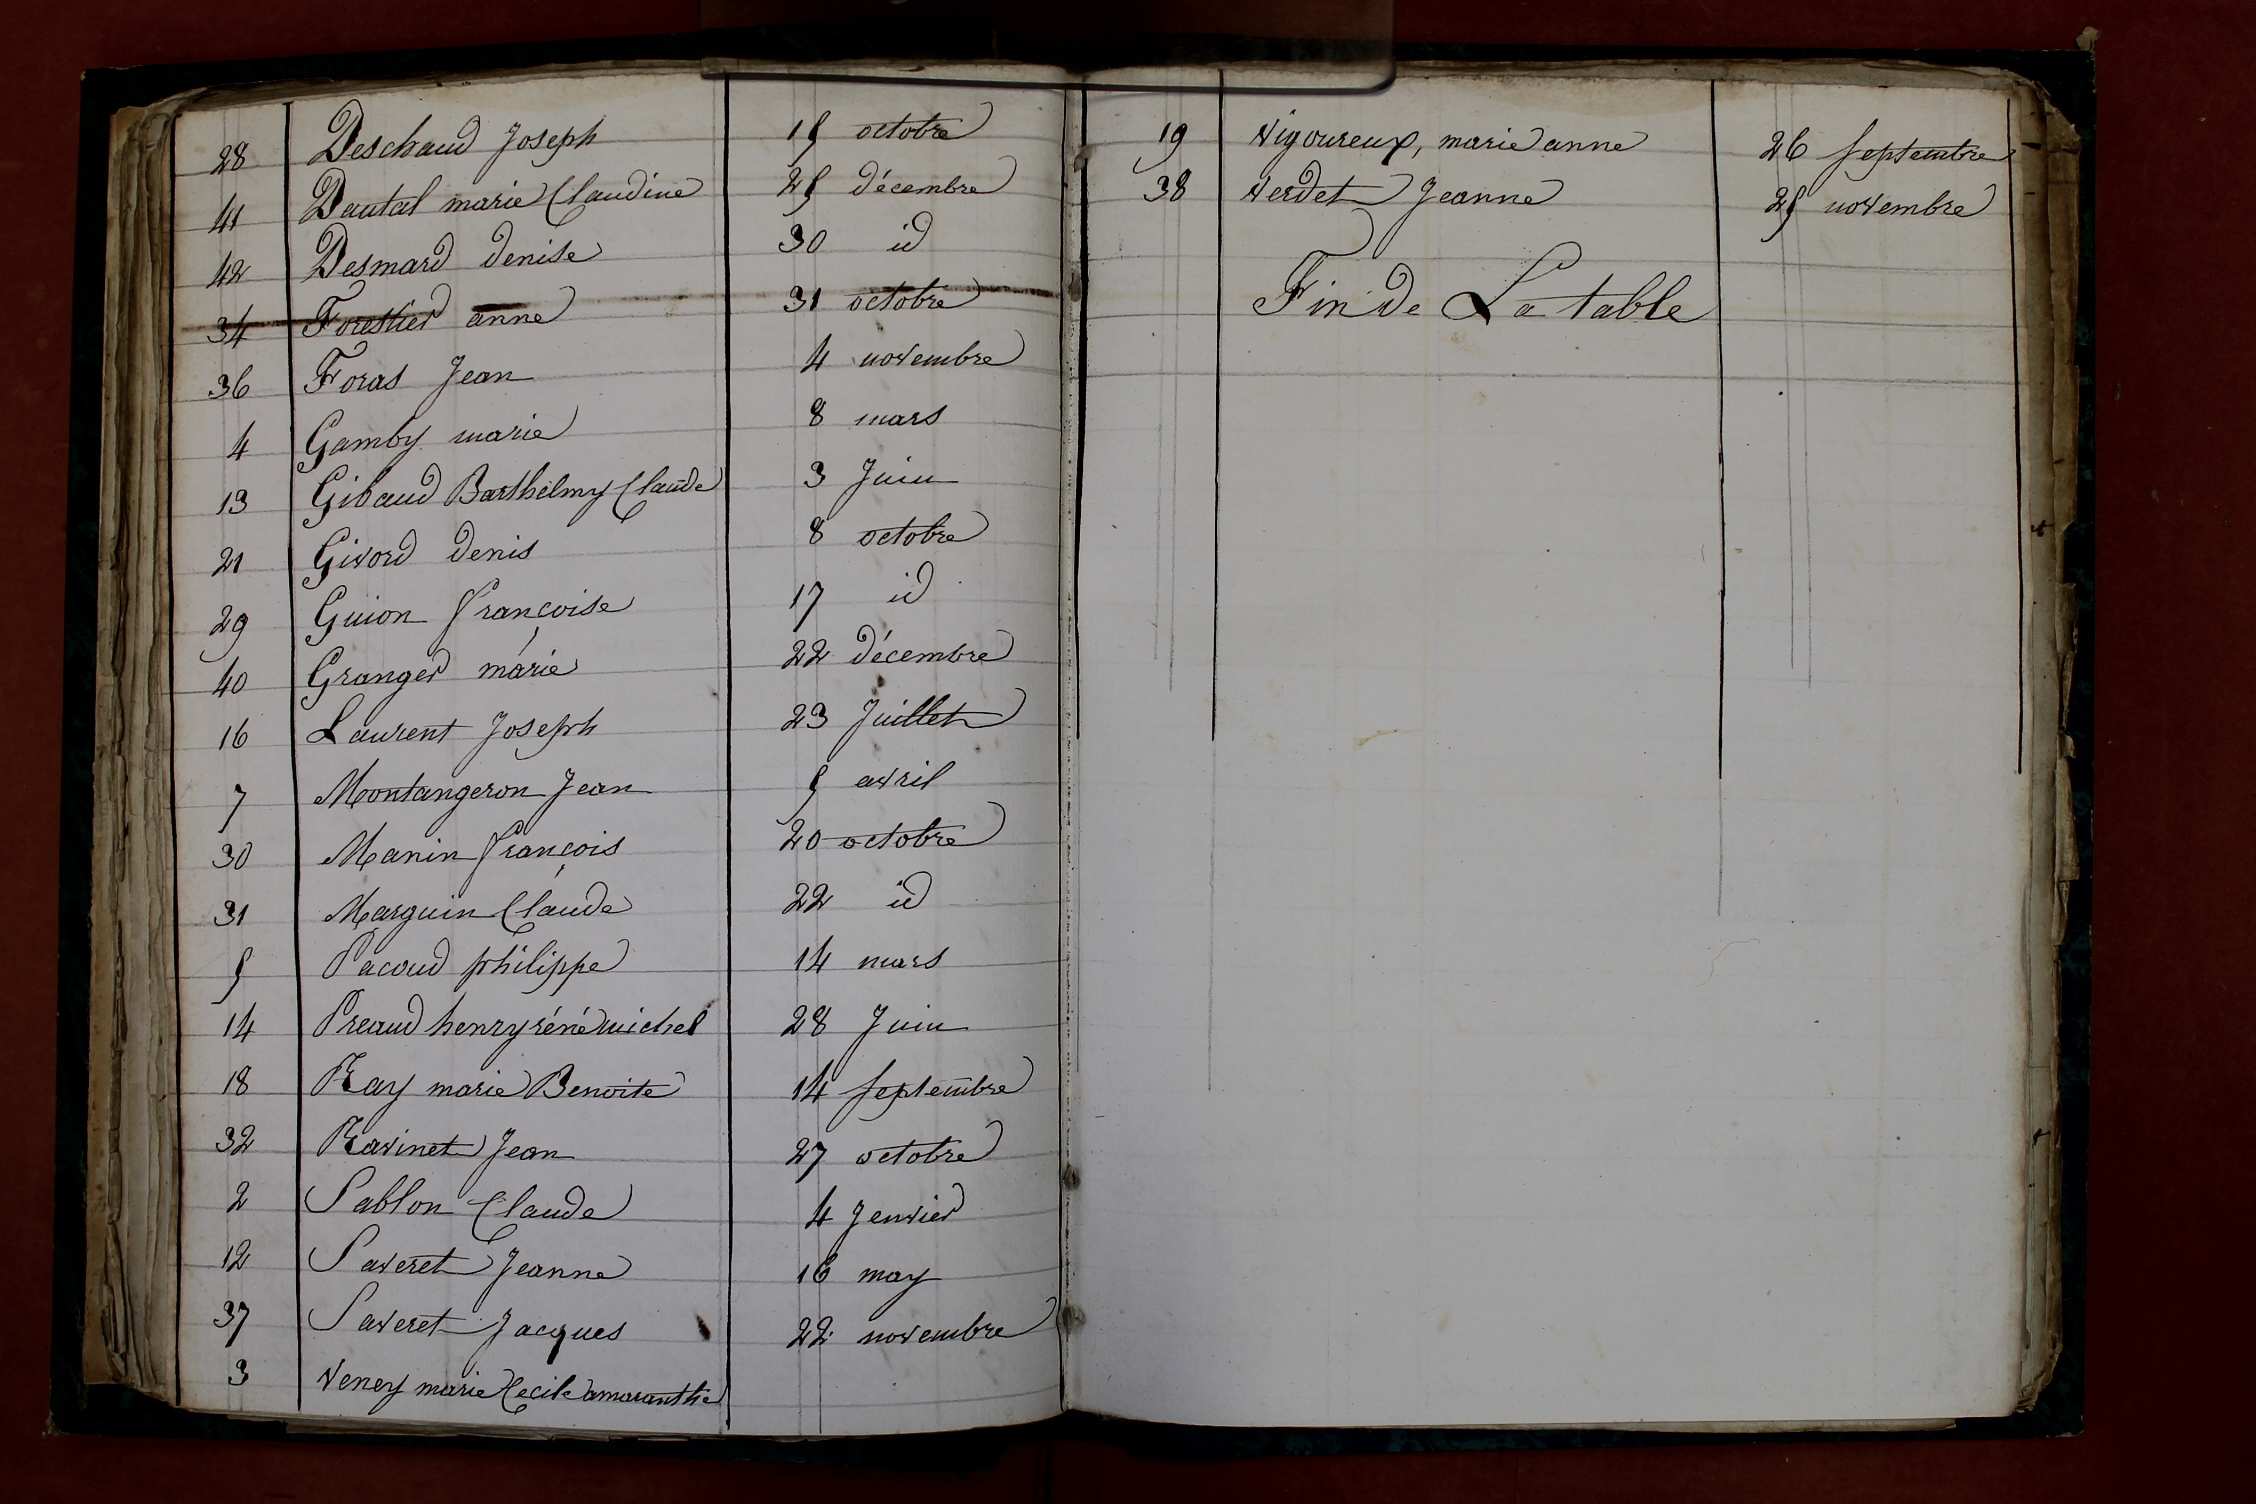 28 Deschaud Joseph 15 octobre
41 Dautal marie Claudine 25 décembre
42 Desmard denise 30 id
34 Forestier anne 31 octobre
36 Foras Jean 4 novembre
4 Gamby marie 8 mars
13 Gibaud Barthelmy Claude 3 Juin
21 Givord denis 8 octobre
29 Guion françoise 17 id
40 Granger marie 22 décembre
16 Laurent Joseph 23 Juillet
7 Montangeron Jean 5 avril
30 Manin françois 20 octobre
31 Marguin Claude 22 id
5 Pacoud philippe 14 mars
14 Preaud henry réné michel 28 Juin
18 Ray marie Benoite 14 septembre
32 Ravinet Jean 27 octobre
2 Sablon Claude 4 Jenvier
12 Saveret Jeanne 16 may
37 Saveret Jacques 22 novembre
3 Veney marie Cecile amaranthe
19 Vigoureux, marie anne 26 septembre
38 Verdet Jeanne 25 novembre
Fin de La table